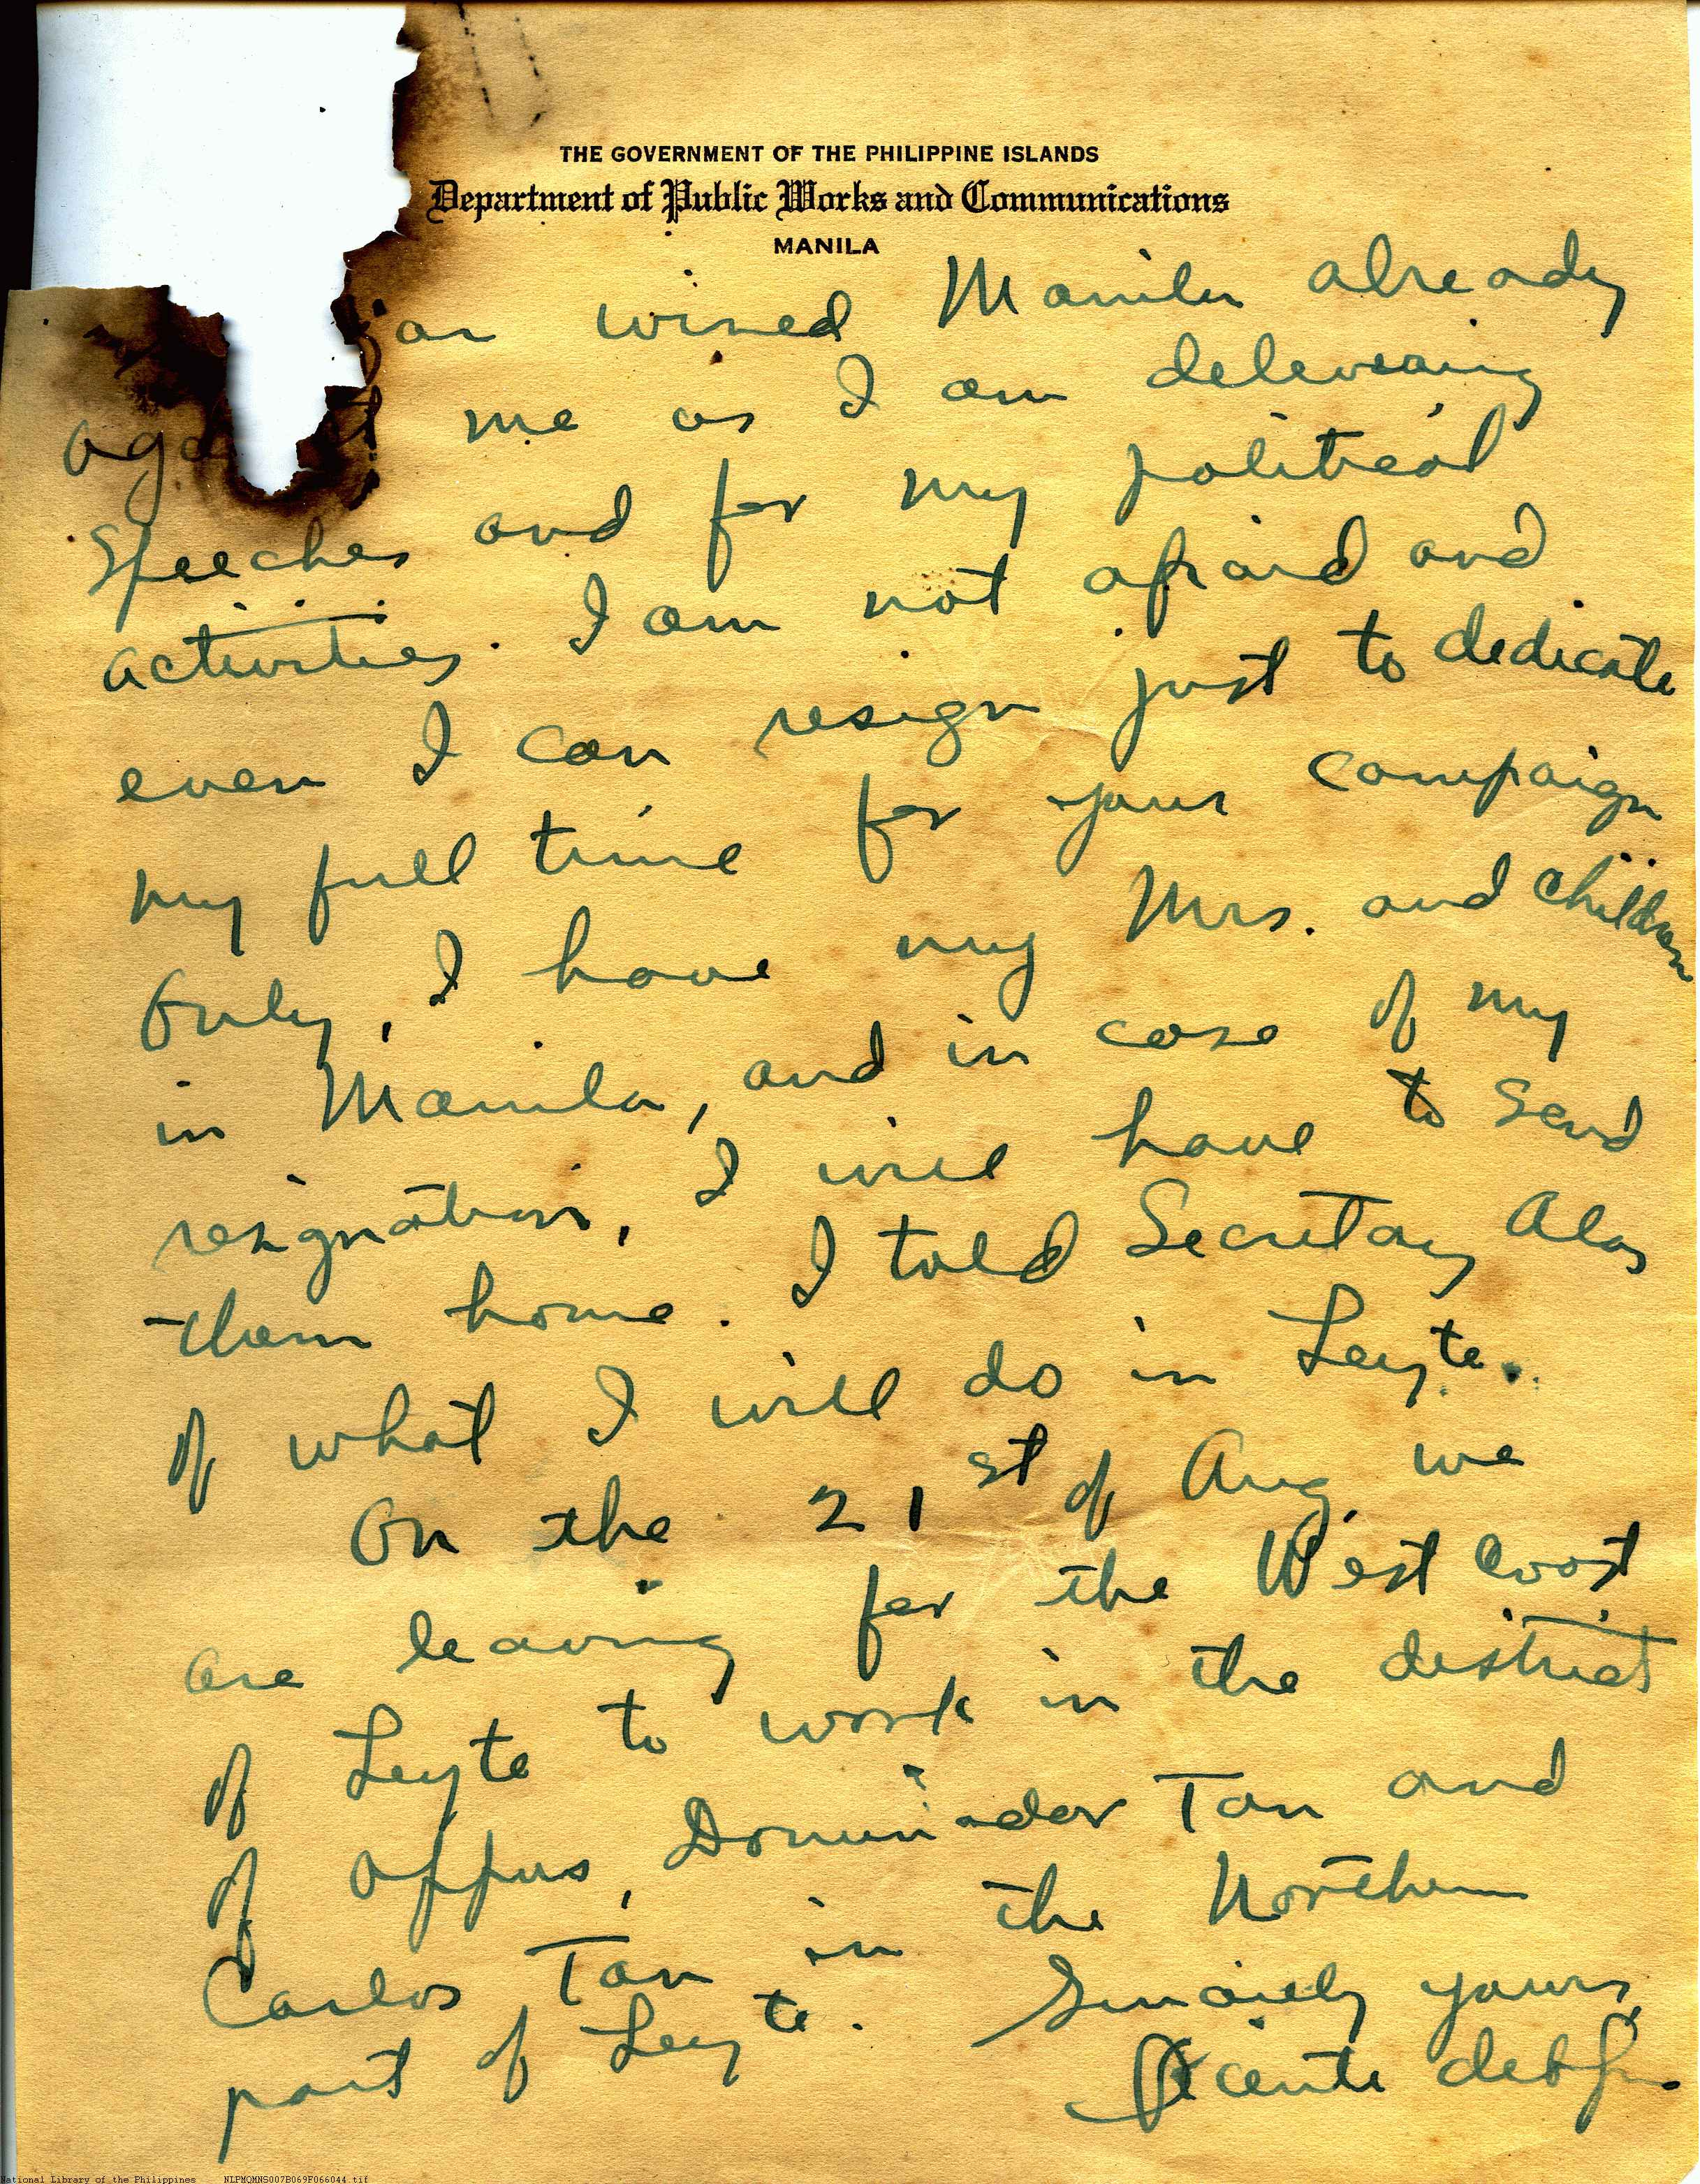 THE GOVERNMENT OF THE PHILIPPINE ISLANDS
Department of Public Works and Communications
MANILA
wired Manila already
against me as I am delivering
speeches and for my political
activities. I am not afraid and
even I can resign just to dedicate
my full time for your campaign
Only, I have my Mrs. and children
in Manila, and in case of my
resignation, I will have to send
them home. I told Secretary Alas
of what I will do in Leyte.
On the 21st of Aug. we
are leaving for the West Coast
of Leyte to work in the district
of Oppus, Dominador Tan and
Carlos Tan in the Northern
part of Leyte.
Sincerely yours,
Vicente
National Library of the Philippines NLPMQMNS007B069F066044.tif